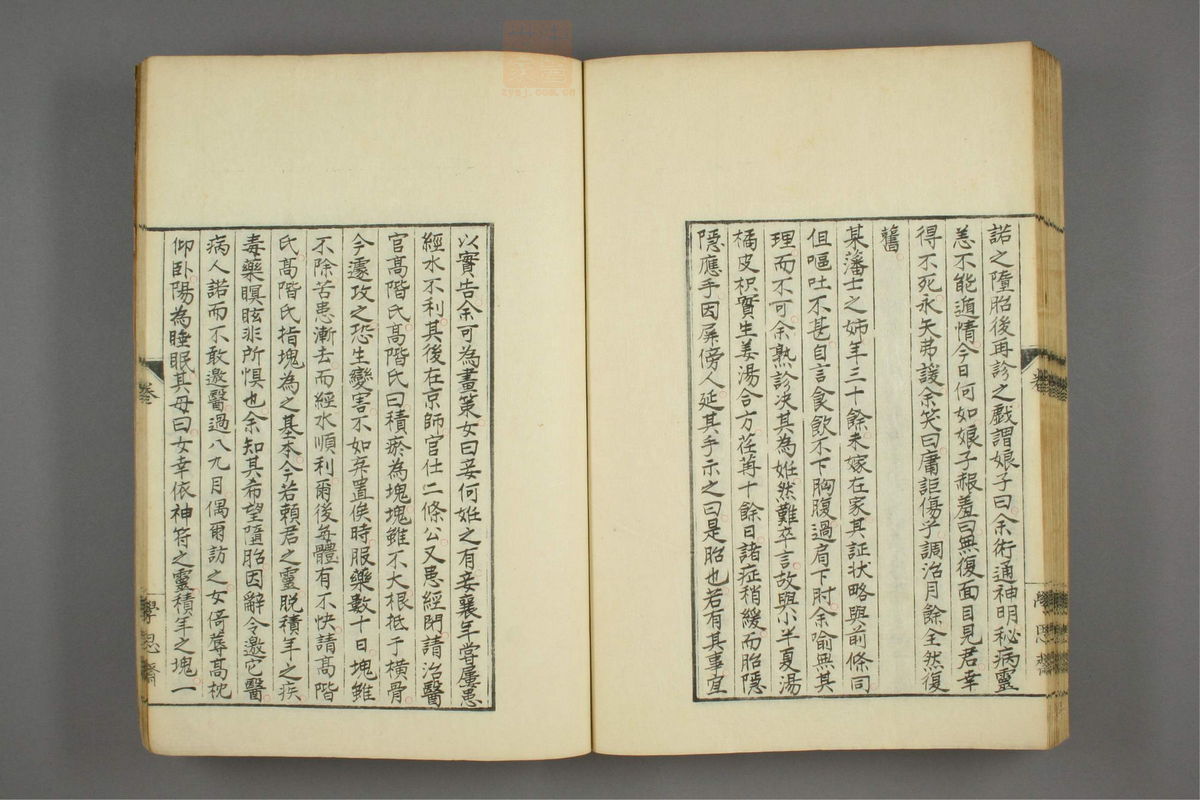 諾之墮胎後再診之戲謂娘子曰余術通神明秘病靈
恙不能遁情今日何如娘子赧羞曰無復面目見君幸
得不死永矢弗諼余笑曰庸詎傷乎調治月餘全然復
舊
某藩士之姉年三十餘未嫁在家其証状略與前條同
但嘔吐不甚自言食飲不下胸腹過肩下肘余喻無其
理而不可余熟診决其為妊然難卒言故與小半夏湯
橘皮枳實生姜湯合方荏苒十餘日諸症稍緩而胎隱
隱應手因屏傍人延其手示之曰是胎也若有其事宜
以實告余可為畫策女曰妾何妊之有妾襄年嘗屢患
經水不利其後在京師官仕二條公又患經閉請治醫
官髙階氏髙階氏曰積瘀為塊塊雖不大根柢于横骨
今遽攻之恐生變害不如棄置俟時服藥數十日塊雖
不除苦患漸去而經水順利爾後每體有不快請髙階
氏髙階氏指塊為之基本今若賴君之靈脱積年之疾
毒藥瞑眩非所惧也余知其希望墮胎因辭令邀它醫
病人諾而不敢邀醫過八九月偶爾訪之女倚蓐髙枕
仰卧陽為睡眠其母曰女幸依神符之靈積年之塊一
卷
學思齋
卷
學思齋